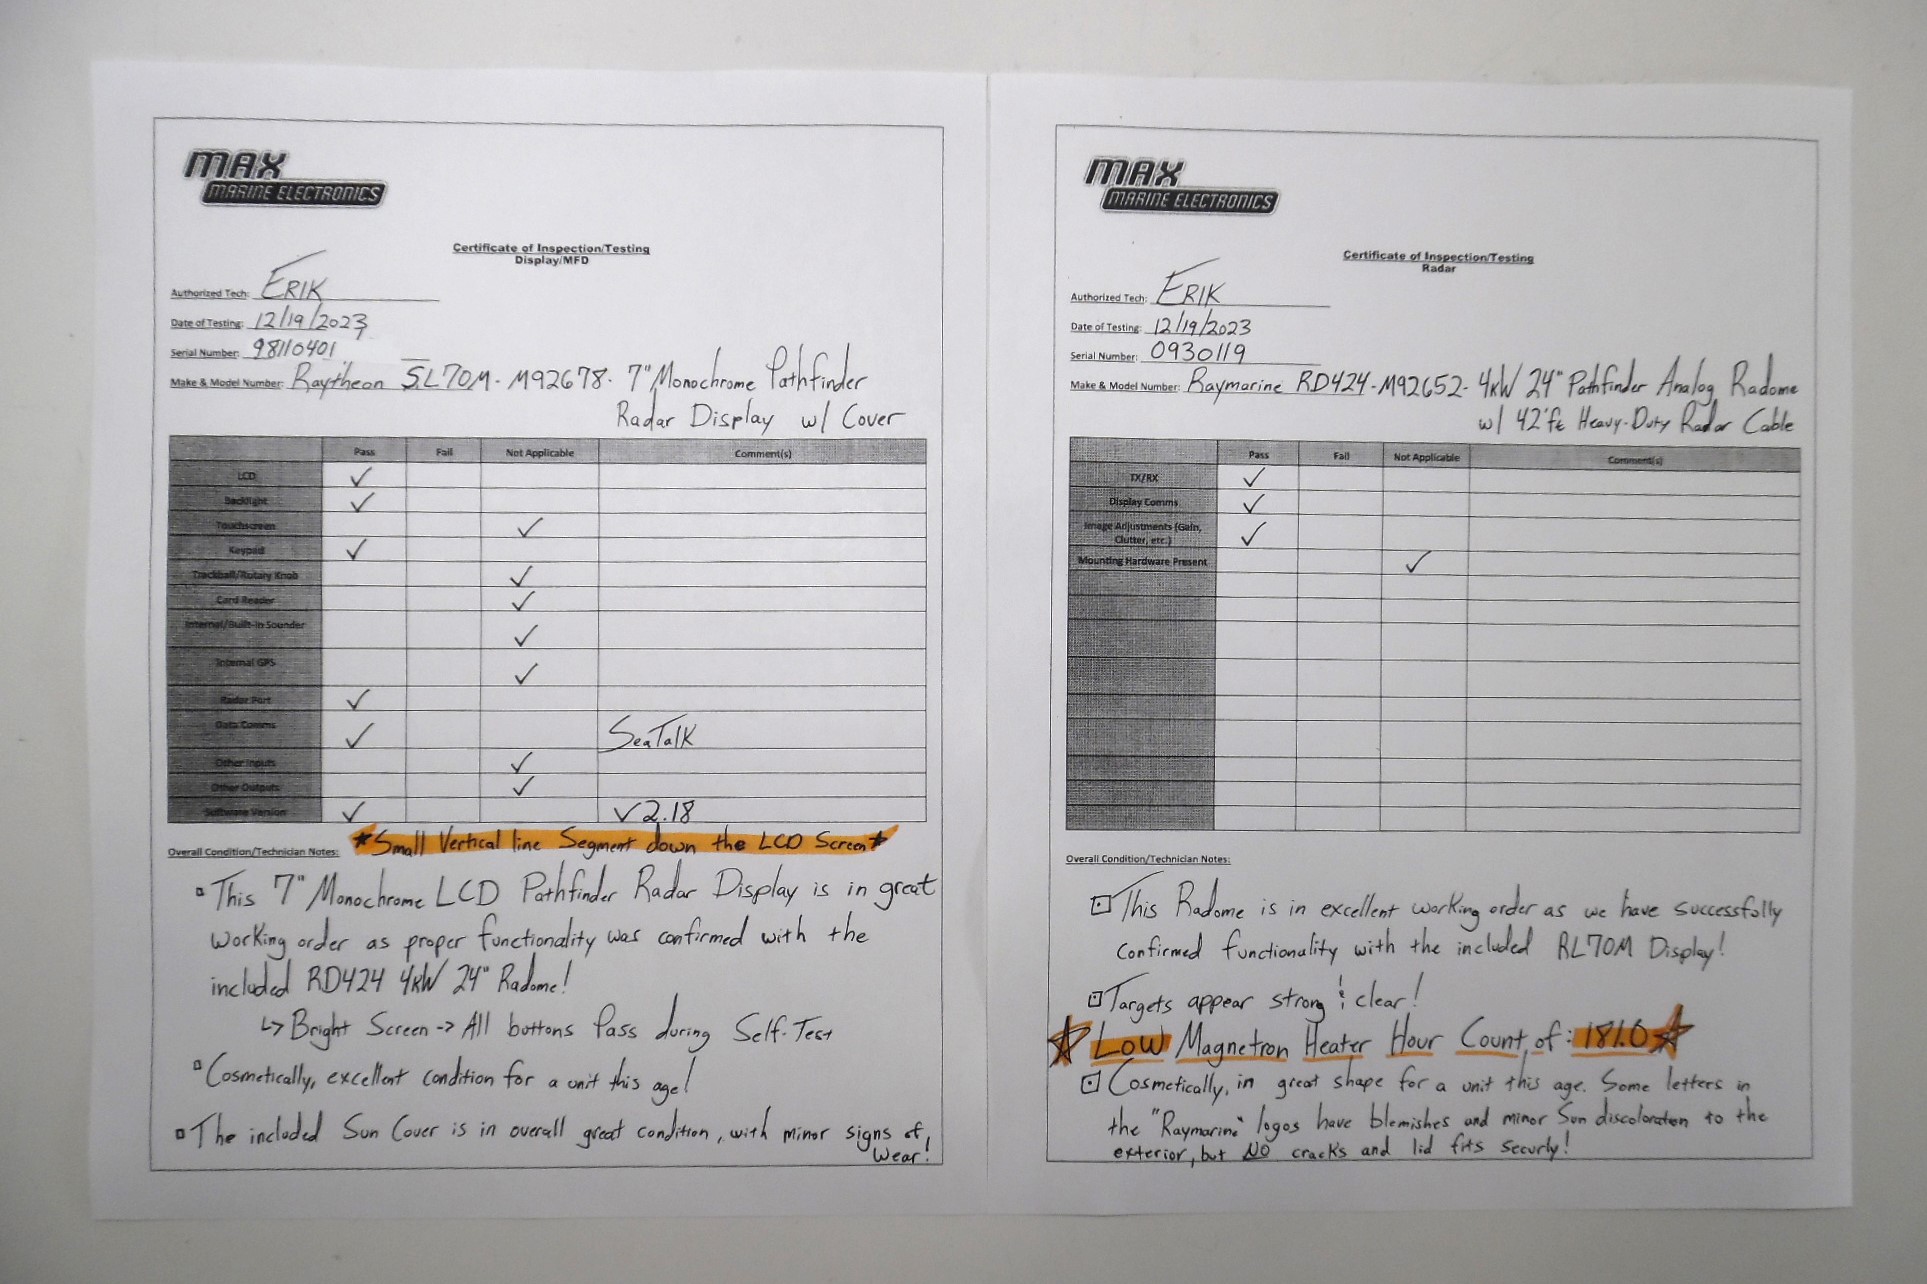 MAX
MARINE ELECTRONICS
Certificate of Inspection/Testing
Display/MFD
Authorized Tech: ERIK
Date of Testing: 12/19/2023
Serial Number: 98110401
Make & Model Number: Raytheon SL70M - M92678 - 7" Monochrome Pathfinder
Radar Display w/ Cover
Pass Fail Not Applicable Comment(s)
LCD ✓
Backlight ✓
Touchscreen ✓
Keypad ✓
Trackball/Rotary Knob ✓
Card Reader ✓
Internal/Built-in Sounder ✓
Internal GPS ✓
Radar Port ✓
Data Comms ✓ SeaTalk
Other Inputs ✓
Other Outputs ✓
Software Version ✓ v2.18
Overall Condition/Technician Notes: ★Small Vertical line Segment down the LCD Screen★
▫ This 7" Monochrome LCD Pathfinder Radar Display is in great
working order as proper functionality was confirmed with the
included RD424 4kW 24" Radome!
↳ Bright Screen -> All buttons Pass during Self-Test
▫ Cosmetically, excellent condition for a unit this age!
▫ The included Sun Cover is in overall great condition, with minor signs of
wear!
MAX
MARINE ELECTRONICS
Certificate of Inspection/Testing
Radar
Authorized Tech: ERIK
Date of Testing: 12/19/2023
Serial Number: 0930119
Make & Model Number: Raymarine RD424 - M92652 - 4kW 24" Pathfinder Analog Radome
w/ 42'ft Heavy-Duty Radar Cable
Pass Fail Not Applicable Comment(s)
TX/RX ✓
Display Comms ✓
Image Adjustments (Gain,
Clutter, etc.) ✓
Mounting Hardware Present ✓
Overall Condition/Technician Notes:
⊡ This Radome is in excellent working order as we have successfully
confirmed functionality with the included RL70M Display!
⊡ Targets appear strong & clear!
★ Low Magnetron Heater Hour Count of: 181.0 ★
⊡ Cosmetically, in great shape for a unit this age. Some letters in
the "Raymarine" logos have blemishes and minor Sun discoloration to the
exterior, but NO cracks and lid fits securly!